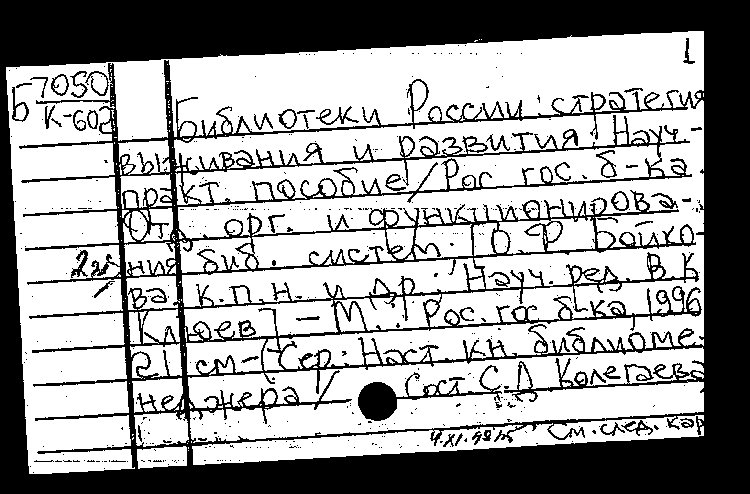 1
Б 7050
К-602
Библиотеки России: стратегия
выживания и развития: Науч.-
практ. пособие / Рос гос. б-ка.
Отд. орг. и функционирова-
ния биб. систем. [О.Ф Бойко-
ва. к.п.н. и др.; Науч. ред. В.К
Клюев]. – М.: Рос. гос б-ка, 1996
21 см – (Сер.: Наст. кн. библиоме-
неджера / Сост С.Д Колегаева
См. след. кар